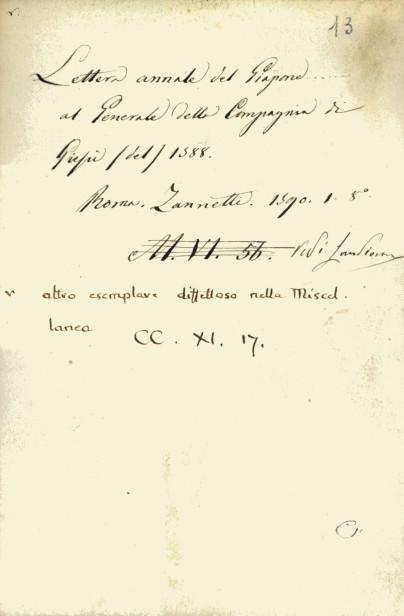 v.
13
Lettera annale del Giapone
al Generale della Compagnia di
Giesù (del) 1588.
Roma. Zannetti. 1590. 1. 8°
M. VI. 56. Vedi
v altro esemplare diffettoso nella Miscel
lanea
CC. XI. 17.